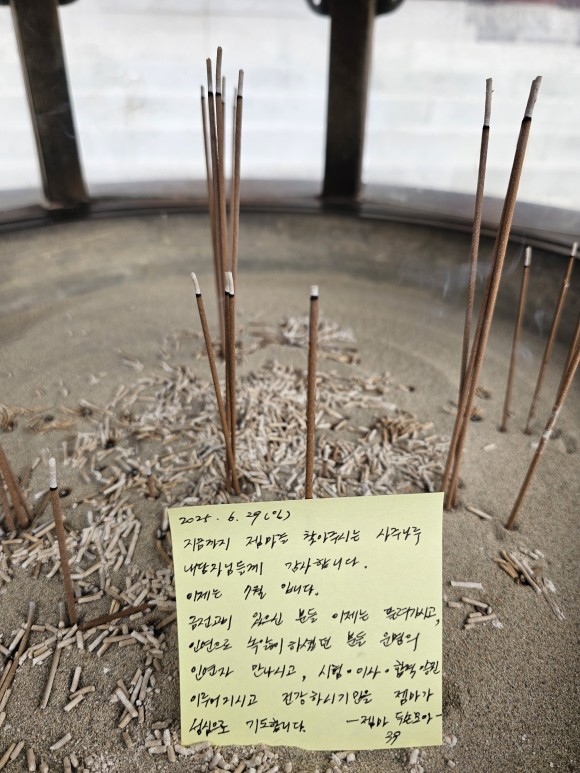 2025. 6. 29 (일)
지금까지 젬마를 찾아주시는 사주나루
내담자님들께 감사합니다.
이제는 7월 입니다.
금전고비 있으신 분들 이제는 풀려가시고,
인연으로 속앓이 하셨던 분들 운명의
인연자 만나시고, 시험·이사·합격 일진
이루어지시고 건강하시기만을 젬마가
성심으로 기도합니다. -젬마 두손모아-